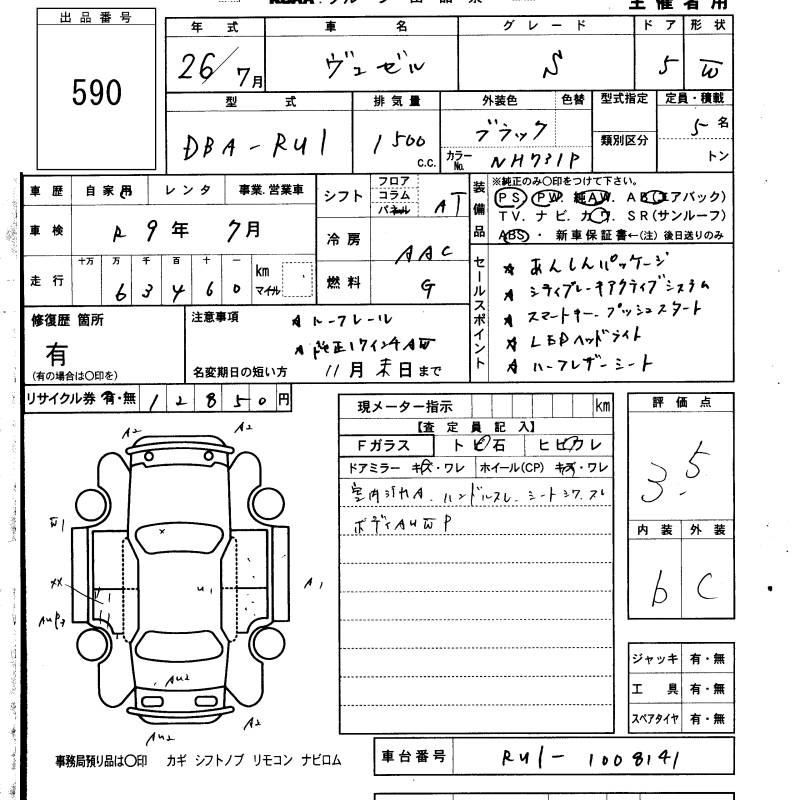 主催者用
出品番号
590
年式 車名 グレード ドア 形状
26/7月 ヴェゼル S 5 W
型式 排気量 外装色 色替 型式指定 定員・積載
DBA-RU1 1500 c.c. ブラック 5名
カラーNo. NH731P 類別区分 トン
車歴 自家用 レンタ 事業.営業車
車検 R9年 7月
走行 十万 万 千 百 十 一
63460 km マイル
シフト フロア コラム パネル AT
冷房 AAC
燃料 G
装備品
※純正のみ〇印をつけて下さい。
PS. PW. 純AW. AB(エアバック)
TV. ナビ. カワ. SR(サンルーフ)
ABS ・ 新車保証書←(注) 後日送りのみ
修復歴 箇所
有
(有の場合は〇印を)
注意事項
★ ルーフレール
★ 純正17インチAW
名変期日の短い方 11月末日まで
セールスポイント
★ あんしんパッケージ
★ シティブレーキアクティブシステム
★ スマートキー. プッシュスタート
★ LEDヘッドライト
★ ハーフレザーシート
リサイクル券 有・無 12850円
現メーター指示 km
【査定員記入】
Fガラス トビ石 ヒビワレ
ドアミラー キズ・ワレ ホイール(CP) キズ・ワレ
室内汚れA. ハンドルスレ. シートシワ. スレ
ボディAUWP
評価点
3.5
内装 外装
b C
A2 A2
W1
XX
U1
A1
AUP3
AU2
A2 A2
AU2
ジャッキ 有・無
工具 有・無
スペアタイヤ 有・無
事務局預り品は〇印 カギ シフトノブ リモコン ナビロム
車台番号 RU1-1008141